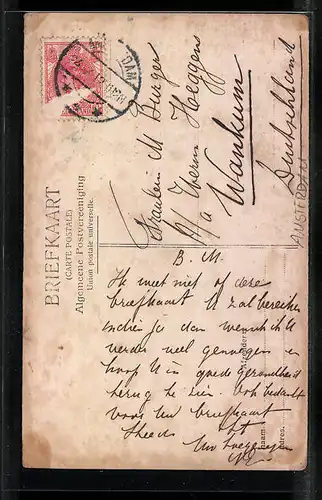 BRIEFKAART
(CARTE POSTALE)
Algemeene Postvereeniging
Union postale universelle.
DAM
Fräulein M Burger
p/a Herrn Heggens
Wankum
Deutschland
AMSTERDAM
B. M.
Ik weet niet of deze
briefkaart U zal bereiken
zoo ja dan wensch ik U
verder veel genoegen en
hoop U in goede gezondheid
terug te zien. Ook bedankt
voor Uw briefkaart
Steeds
Uw
Afzender
naam
adres.